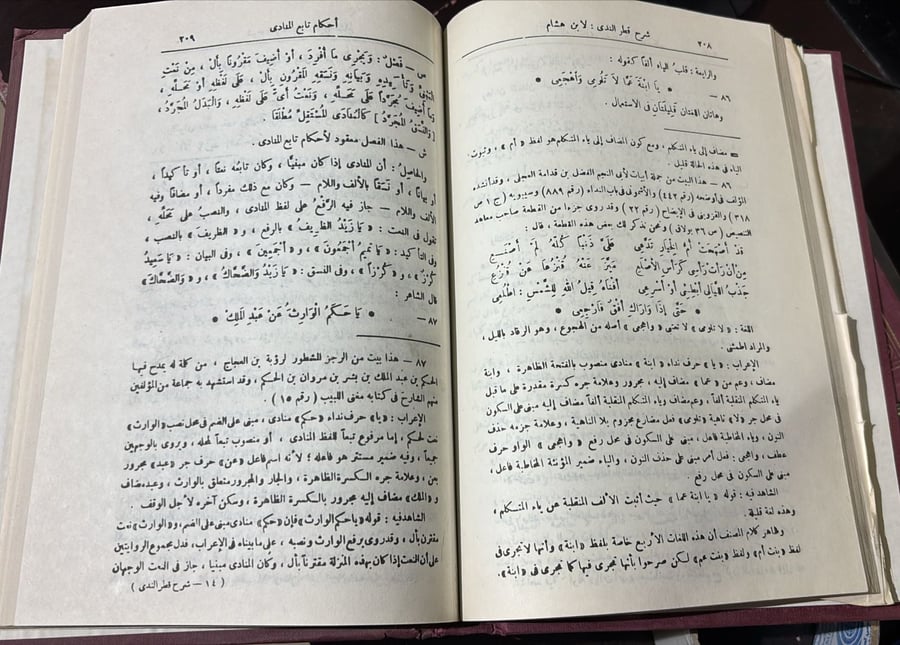 ٢٠٨
شرح قطر الندى : لابن هشام
والرابعة : قلب الياء ألفا كقوله :
٨٦ — • يا ابْنَةَ عَمَّا لَا تَلُومِي وَاهْجَعِي •
وهاتان اللغتان قَلِيلَتَانِ في الاستعمال .
= مضاف إلى ياء المتكلم ، ومع كون المضاف إلى ياء المتكلم هو لفظ « أم » ، وثبوت
الياء في هذه الحالة قليل .
٨٦ — هذا البيت من جملة أبيات لأبى النجم الفضل بن قدامة العجلى ، وقد أنشده
المؤلف فى أوضحه (رقم ٤٤٢) والأشمونى فى باب النداء (رقم ٨٨٩) وسيبويه (ج ١ ص
٣١٨) والقزوينى فى الإيضاح (رقم ٢٢) وقد روى جزءا من القطعة صاحب معاهد
التنصيص (ص ٣٦ بولاق) ونحن نذكر لك بعض هذه القطعة ، قال :
قَدْ أَصْبَحَتْ أُمُّ الْخِيَارِ تَدَّعِى عَلَىَّ ذَنْبًا كُلُّهُ لَمْ أَصْنَعِ
مِنْ أَنْ رَأَتْ رَأْسِى كَرَأْسِ الْأَصْلَعِ مَيَّزَ عَنْهُ قُنْزُعًا عَنْ قُنْزُعِ
جَذْبُ اللَّيَالِى أَبْطِئِى أَوْ أَسْرِعِى أَفْنَاهُ قِيلُ اللهِ لِلشَّمْسِ : اطْلُعِى
• حَتَّى إِذَا وَارَاكِ أُفْقٌ فَارْجِعِى •
اللغة : « لا تلومى » لا تعتبى « واهجعى » أصله من الهجوع ، وهو الرقاد بالليل ،
والمراد اطمئنى .
الإعراب : « يا » حرف نداء « ابنة » منادى منصوب بالفتحة الظاهرة ، وابنة
مضاف ، وعم من « عما » مضاف إليه ، مجرور وعلامة جره كسرة مقدرة على ما قبل
ياء المتكلم المنقلبة ألفاً ، وعم مضاف وياء المتكلم المنقلبة ألفاً مضاف إليه مبنى على السكون
فى محل جر « لا » ناهية « تلومى » فعل مضارع مجزوم بلا الناهية ، وعلامة جزمه حذف
النون ، وياء المخاطبة فاعل ، مبنى على السكون فى محل رفع « واهجعى » الواو حرف
عطف ، واهجعى : فعل أمر مبنى على حذف النون ، والياء ضمير المؤنثة المخاطبة فاعل ،
مبنى على السكون فى محل رفع .
الشاهد فيه : قوله « يا ابنة عما » حيث أثبت الألف المنقلبة عن ياء المتكلم ،
وهذه لغة قليلة .
وظاهر كلام المصنف أن هذه اللغات الأربع خاصة بلفظ « ابنة » وأنها لا تجرى فى
لفظ « بنت أم » ولفظ « بنت عم » لكن صرحوا بأنها تجرى فيهما كما تجرى فى « ابنة » .
أحكام تابع المنادى
٢٠٩
ص — فَصْلٌ : وَيَجْرِى مَا أُفْرِدَ ، أَوْ أُضِيفَ مَقْرُونًا بِأَلْ ، مِنْ نَعْتِ
الْمَبْنِىِّ وَتَأْكِيدِهِ وَبَيَانِهِ وَنَسَقِهِ الْمَقْرُونِ بِأَلْ ، عَلَى لَفْظِهِ أَوْ مَحَلِّهِ ،
وَمَا أُضِيفَ مُجَرَّدًا عَلَى مَحَلِّهِ ، وَنَعْتُ أَىٍّ عَلَى لَفْظِهِ ، وَالْبَدَلُ الْمُجَرَّدُ ،
[ وَالنَّسَقُ الْمُجَرَّدُ ] كَالْمُنَادَى الْمُسْتَقِلِّ مُطْلَقًا .
ش — هذا الفصل معقود لأحكام تابع المنادى .
والحاصلُ : أن المنادى إذا كان مبنيًّا ، وكان تابعُه نعتًا ، أو تأكيداً ،
أو بياناً ، أو نَسَقًا بالألف واللام — وكان مع ذلك مفرداً ، أو مضافًا وفيه
الألف واللام — جاز فيه الرَّفْعُ على لفظ المنادى ، والنصبُ على مَحَلِّه ،
تقول فى النعت : « يَا زَيْدُ الظَّرِيفُ » بالرفع ، و « الظريفَ » بالنصب ،
وفى التأكيد : « يَا تَمِيمُ أَجْمَعُونَ » ، و « أَجْمَعِينَ » ، وفى البيان : « يَا سَعِيدُ
كُرْزٌ » ، و « كُرْزاً » ، وفى النسق : « يَا زَيْدُ وَالضَّحَّاكُ » ، و « وَالضَّحَّاكَ »
قال الشاعر :
٨٧ — • يَا حَكَمُ الْوَارِثُ عَنْ عَبْدِ المَلِكْ •
٨٧ — هذا بيت من الرجز المشطور لرؤبة بن العجاج ، من كلمة له يمدح فيها
الحكم بن عبد الملك بن بشر بن مروان بن الحكم ، وقد استشهد به جماعة من المؤلفين
منهم الشارح فى كتابه مغنى اللبيب ( رقم ١٥ ) .
الإعراب : « يا » حرف نداء « حكم » منادى ، مبنى على الضم فى محل نصب « الوارث »
نعت لحكم ، إما مرفوع تبعاً للفظ المنادى ، أو منصوب تبعاً لمحله ، ويروى بالوجهين
جميعاً ، وفيه ضمير مستتر هو فاعله ؛ لأنه اسم فاعل « عن » حرف جر « عبد » مجرور
بعن ، وعلامة جره الكسرة الظاهرة ، والجار والمجرور متعلق بالوارث ، وعبد مضاف
و « الملك » مضاف إليه مجرور بالكسرة الظاهرة ، وسكن آخره لأجل الوقف .
الشاهد فيه : قوله « يا حكم الوارث » فإن « حكم » منادى مبنى على الضم ، و « الوارث » نعت
مقترن بأل ، وقد روى برفع الوارث ونصبه ، على ما بيناه فى الإعراب ، فدل مجموع الروايتين
على أن النعت إذا كان بهذه المنزلة مقترناً بأل ، وكان المنادى مبنيا ، جاز فى النعت الوجهان
( ١٤ — شرح قطر الندى )